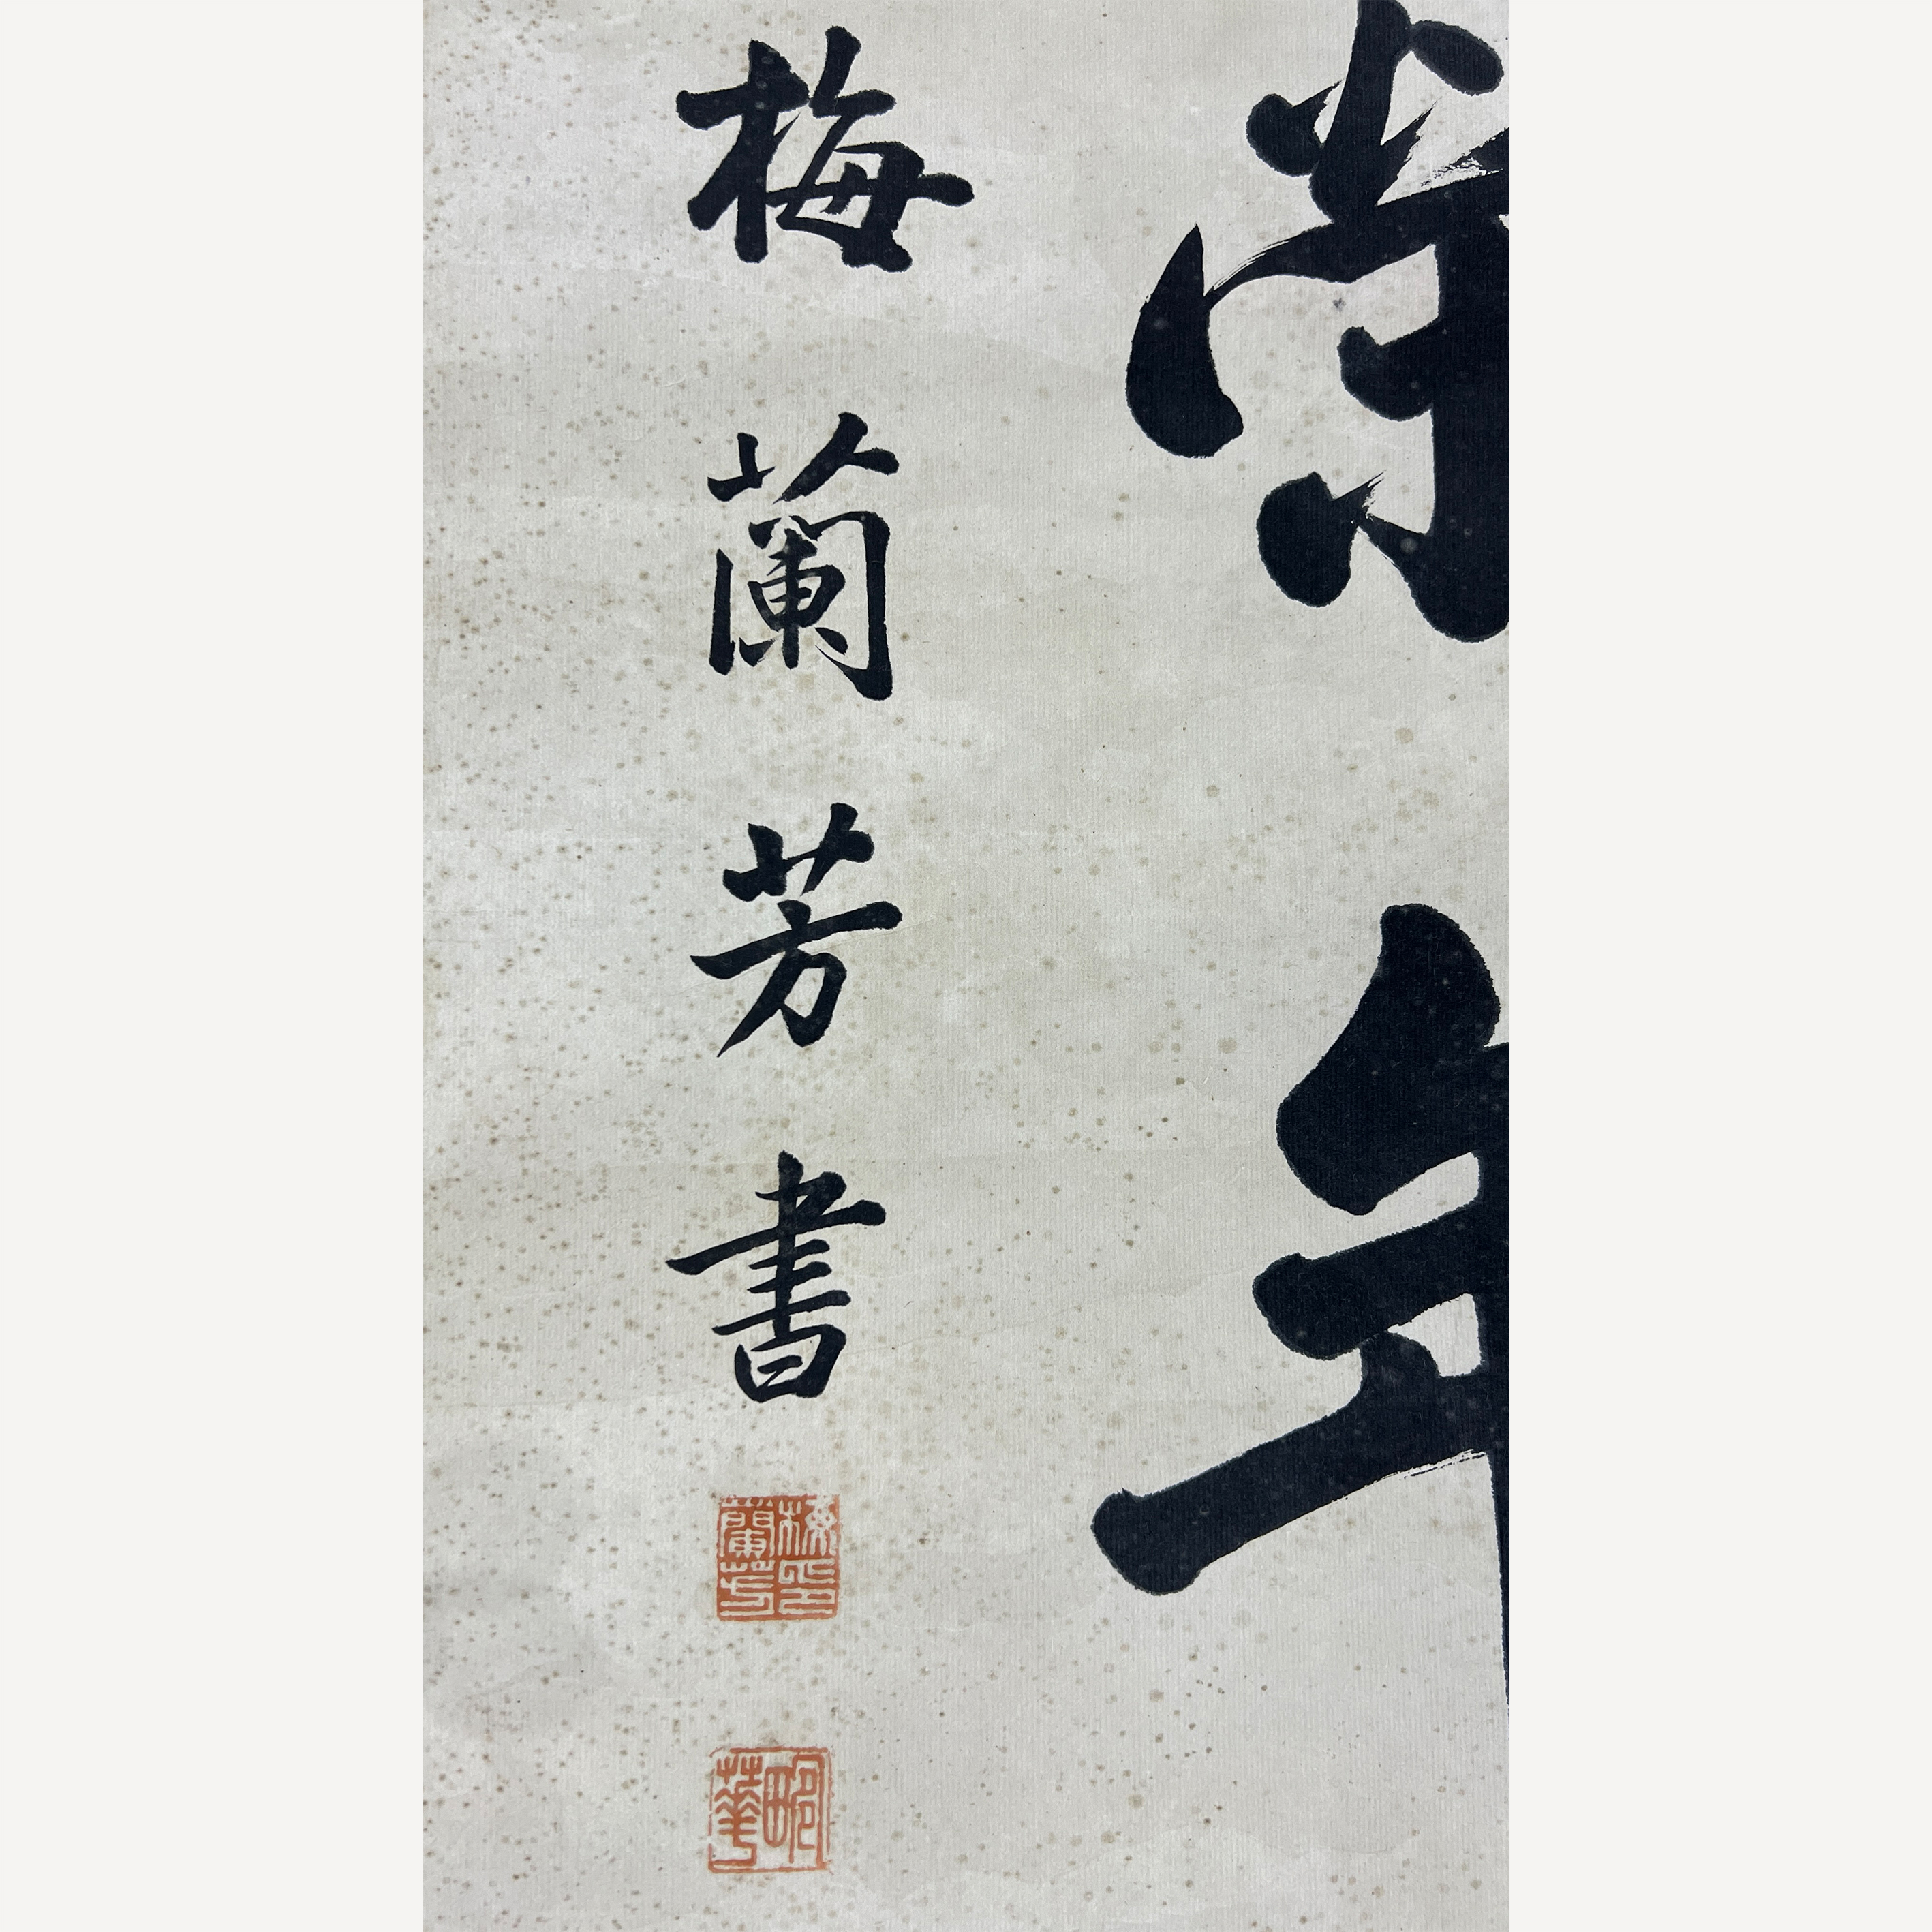 年
梅蘭芳書
梅蘭芳印
畹華